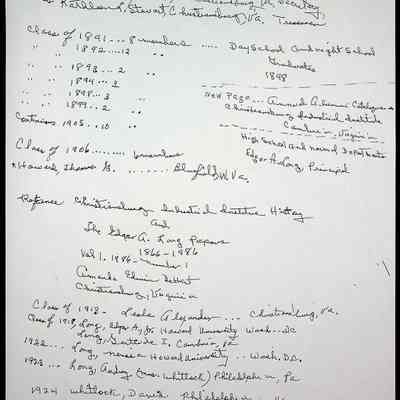 Secretary,
Kathleen J. Stewart, Christiansburg, Va. Treasurer
Class of 1891... 8 members ..... Day School and night School
" " 1892....12 " Graduates
1898
" " 1893... 2 "
" " 1894... 3 " New Page... Annual Alumni Catalogue
" " 1898... 3 " Christiansburg Industrial Institute
" " 1899.. 2 " Cambria, Virginia
1905..10 " High School and normal Departments
Class of 1906......... members Edgar A. Long, Principal
* Howard, Thomas G. ....... Bluefield, W. Va.
Reference Christiansburg Industrial Institute History
and
The Edgar A. Long Papers
1866-1986
Vol 1. 1986 - number 1
Christiansburg, Virginia
Class of 1918- Leslie Alexander ... Christiansburg, Va.
Class of 1918, Long, Edgar A, Jr. Howard University Wash.. DC
Long, Gertrude I. Cambria, Va
1922... Long, Howard University.. Wash, D.C.
1923... Long, (Mrs. Whitlock) Philadelphia, Pa
1924 Whitlock, David Philadelphia